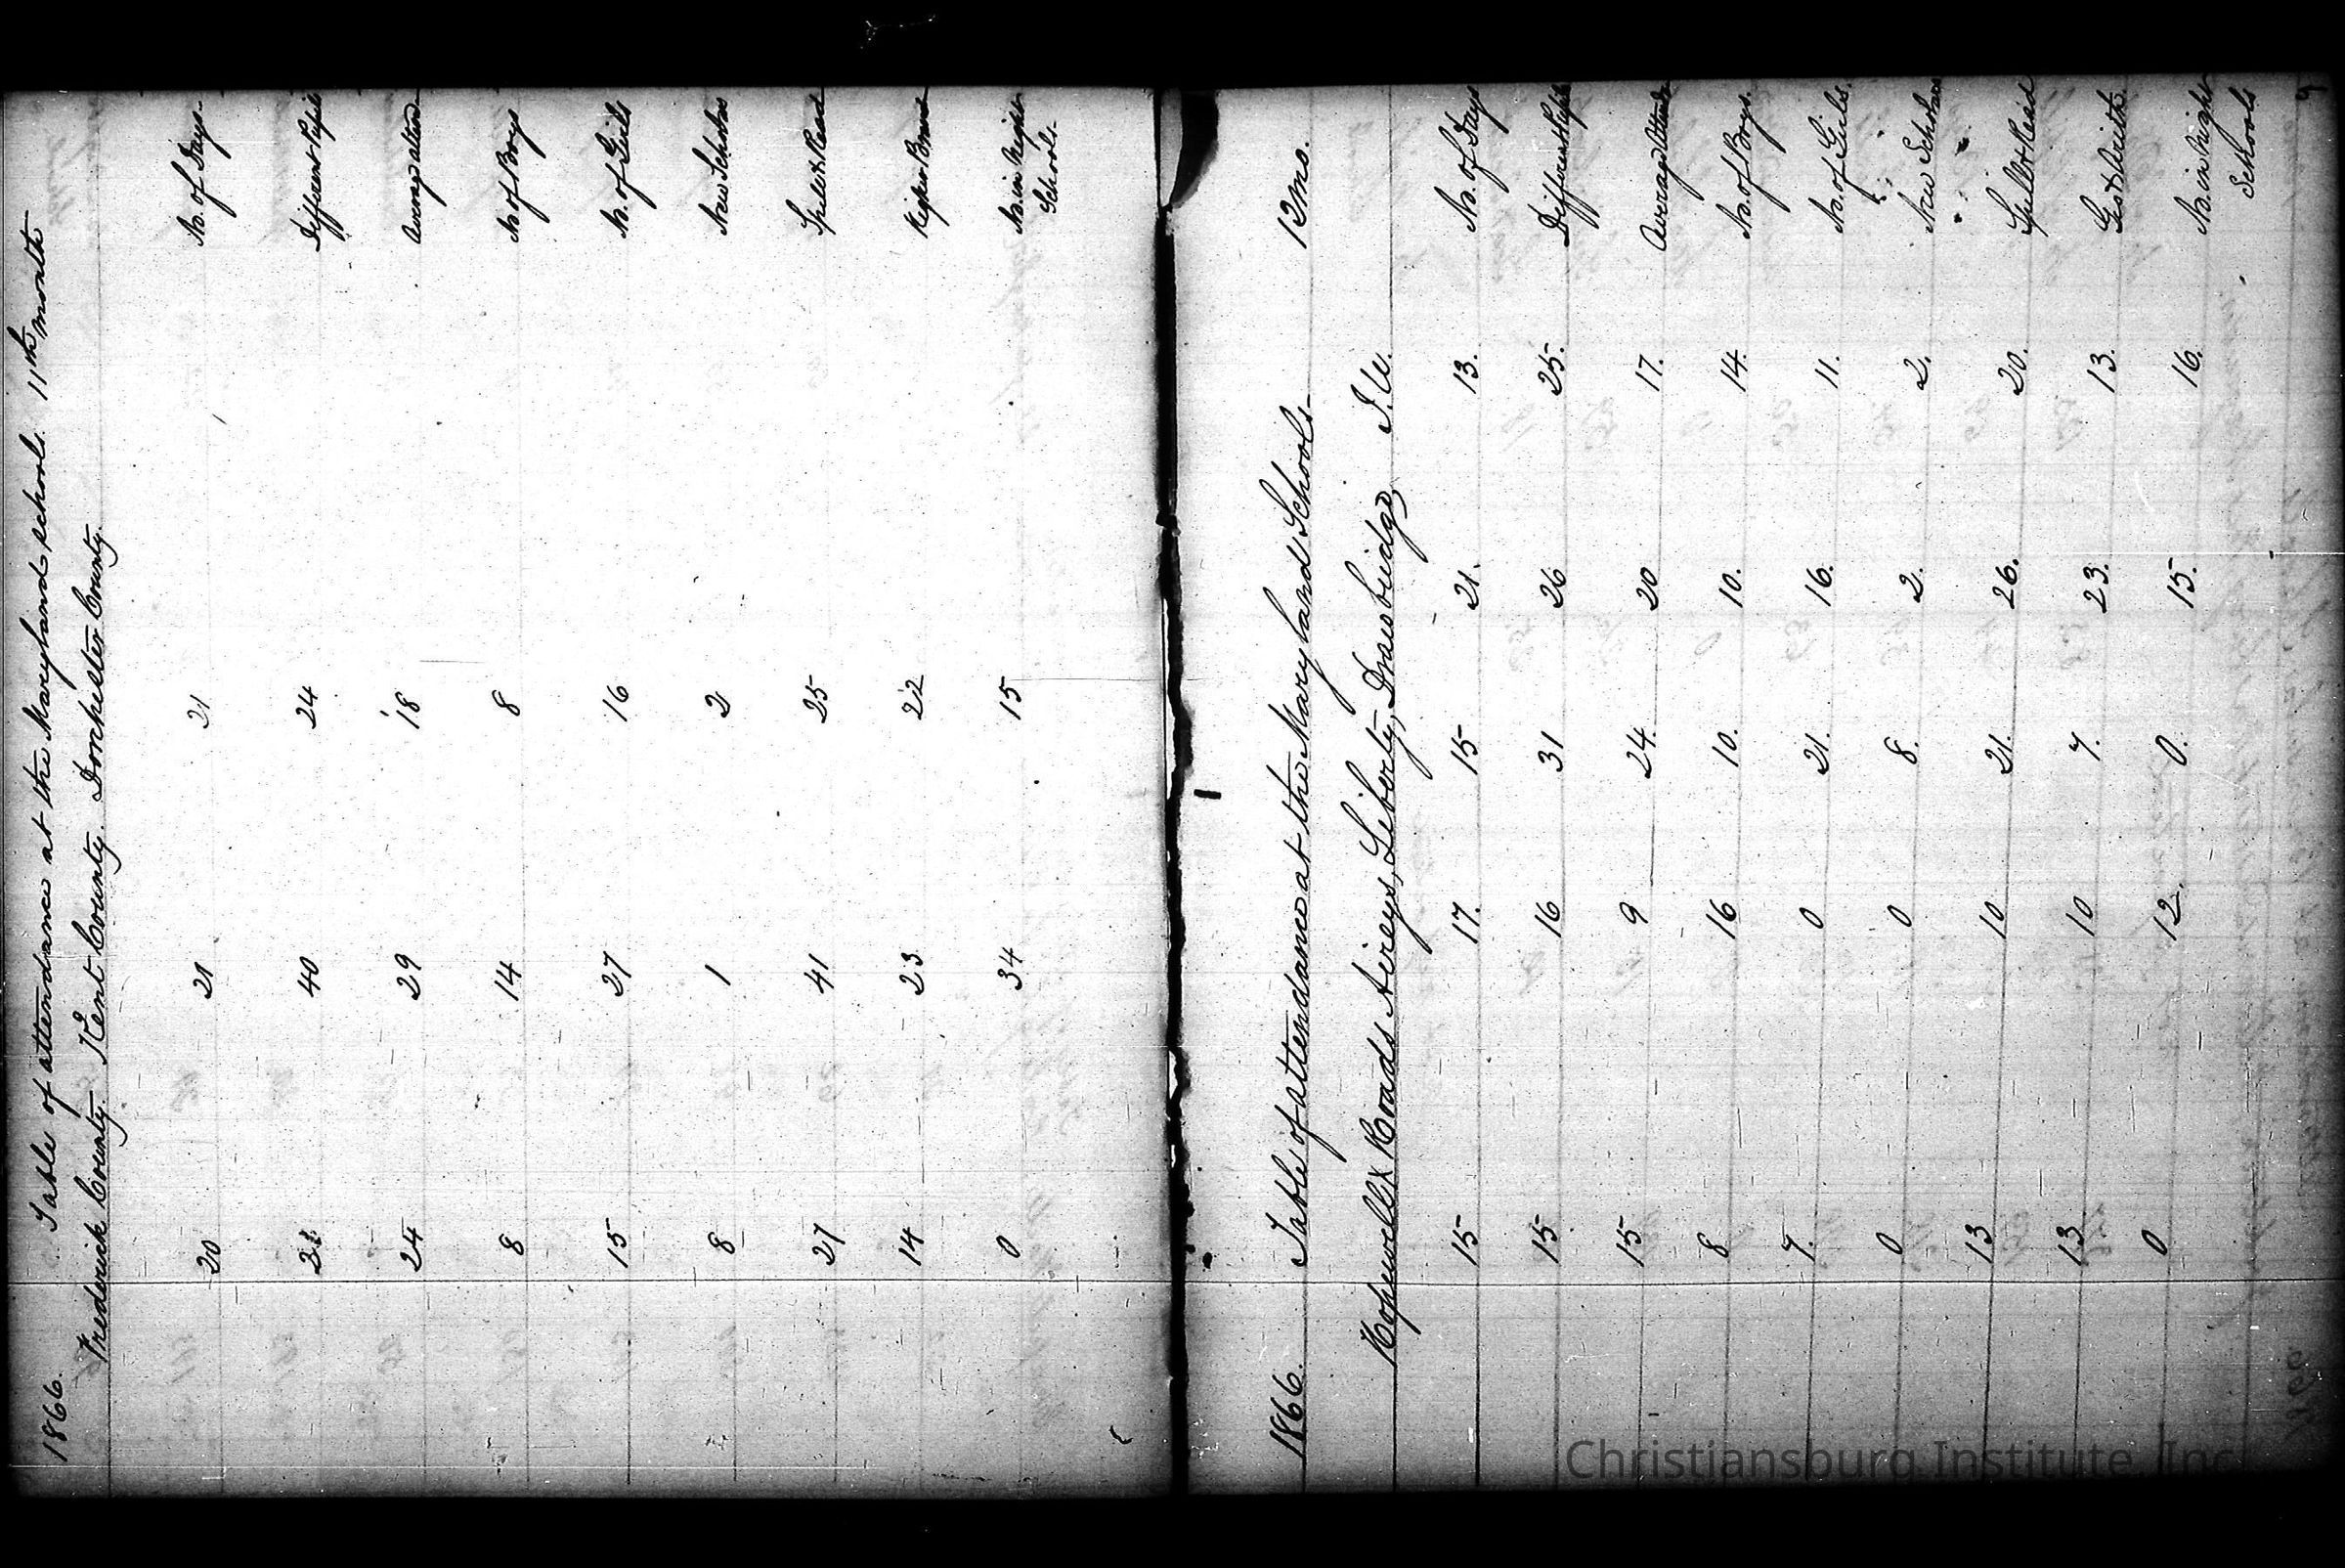 1866. Table of attendance at the Maryland schools. 11th month
Frederick County. Kent County. Dorchester County.
20 21 21 No. of Days
40 24 Different Pupils
24 29 18 Average atten
8 14 8 No of Boys
15 27 16 No. of Girls
8 1 2 New Scholars
27 41 25 Spell & Read
14 23 22 Higher Branc
0 34 15 No. in Night
Schools
1866. Table of attendance at the Maryland Schools 12mo.
Hopewell X Roads Aireys, Liberty, Drawbridge, I.U.
15 17. 15 21. 13. No. of Days
15. 16 31 26 25. Different Pupils
15 9 24. 20 17. Average Atten
8 16 10. 10. 14. No. of Boys.
7. 0 21. 16. 11. No. of Girls.
0 0 8. 2. 2. New Scholars
13 10 21. 26. 20. Spell & Read
13 10 7. 23. 13. Geo & Arith.
0 12. 0. 15. 16. No. in Night
Schools
9
Christiansburg Institute, Inc